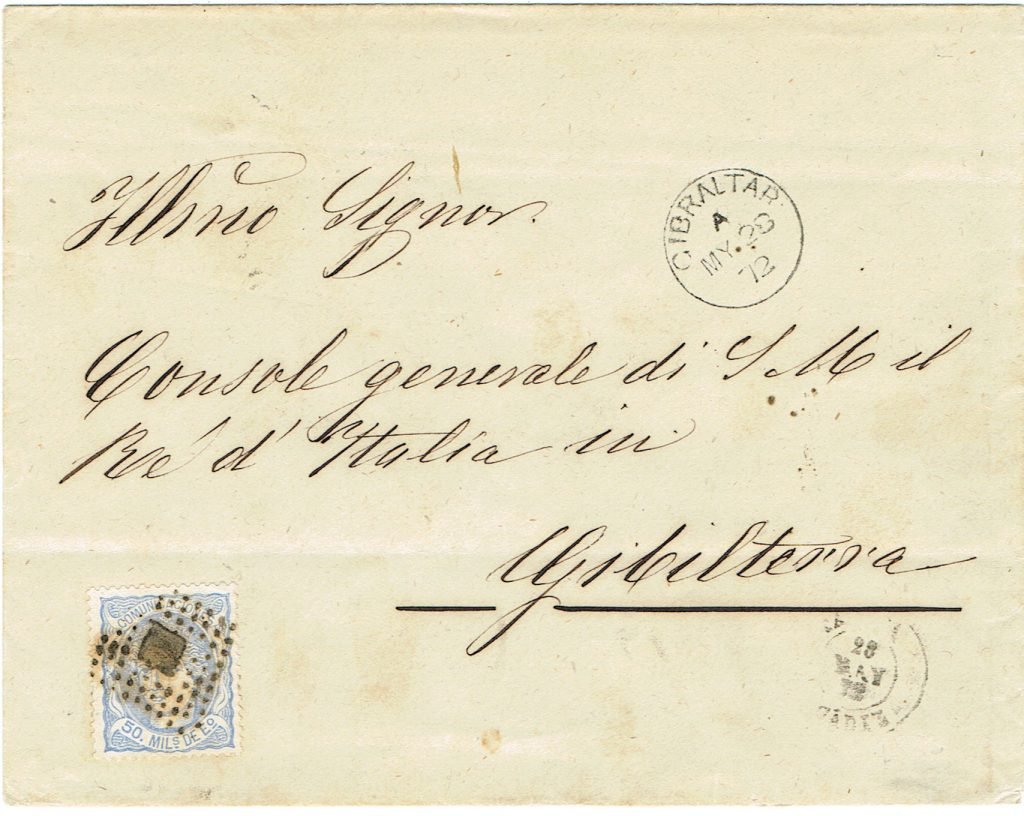 GIBRALTAR
A
MY 28
72
Illmo Signor.
Console generale di S M il
Ré d'Italia in
Gibilterra
COMUNICACIONES
50. MILS DE Eo
28
MAY
CADIZ